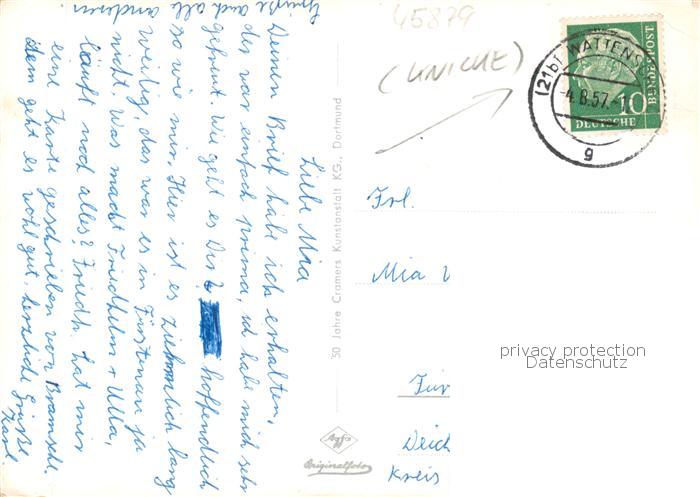 45879
(KNICKE)
(21b) WATTENS
-4.8.57.-1
g
10
DEUTSCHE
BUNDESPOST
Liebe Mia
Deinen Brief habe ich erhalten,
der war einfach prima, ich habe mich sehr
gefreut. Wie geht es Dir? hoffendlich
so wie mir. Hier ist es ziehmlich lang
weilig, das war es in Fürstenau ja
nicht. Was macht Friedhelm + Ulla,
läuft noch alles? Friedh. hat mir
eine Karte geschrieben von Bramsche
dem geht es wohl gut, herzliche Grüße
Karl
Grüße auch all anderen
50 Jahre Cramers Kunstanstalt KG., Dortmund
Agfa
Originalfoto
Frl.
Mia
Für
Deich
Kreis
privacy protection
Datenschutz